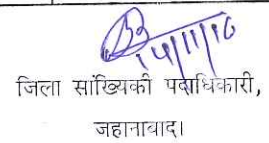 14/11/16
जिला सांख्यिकी पदाधिकारी,
जहानाबाद।